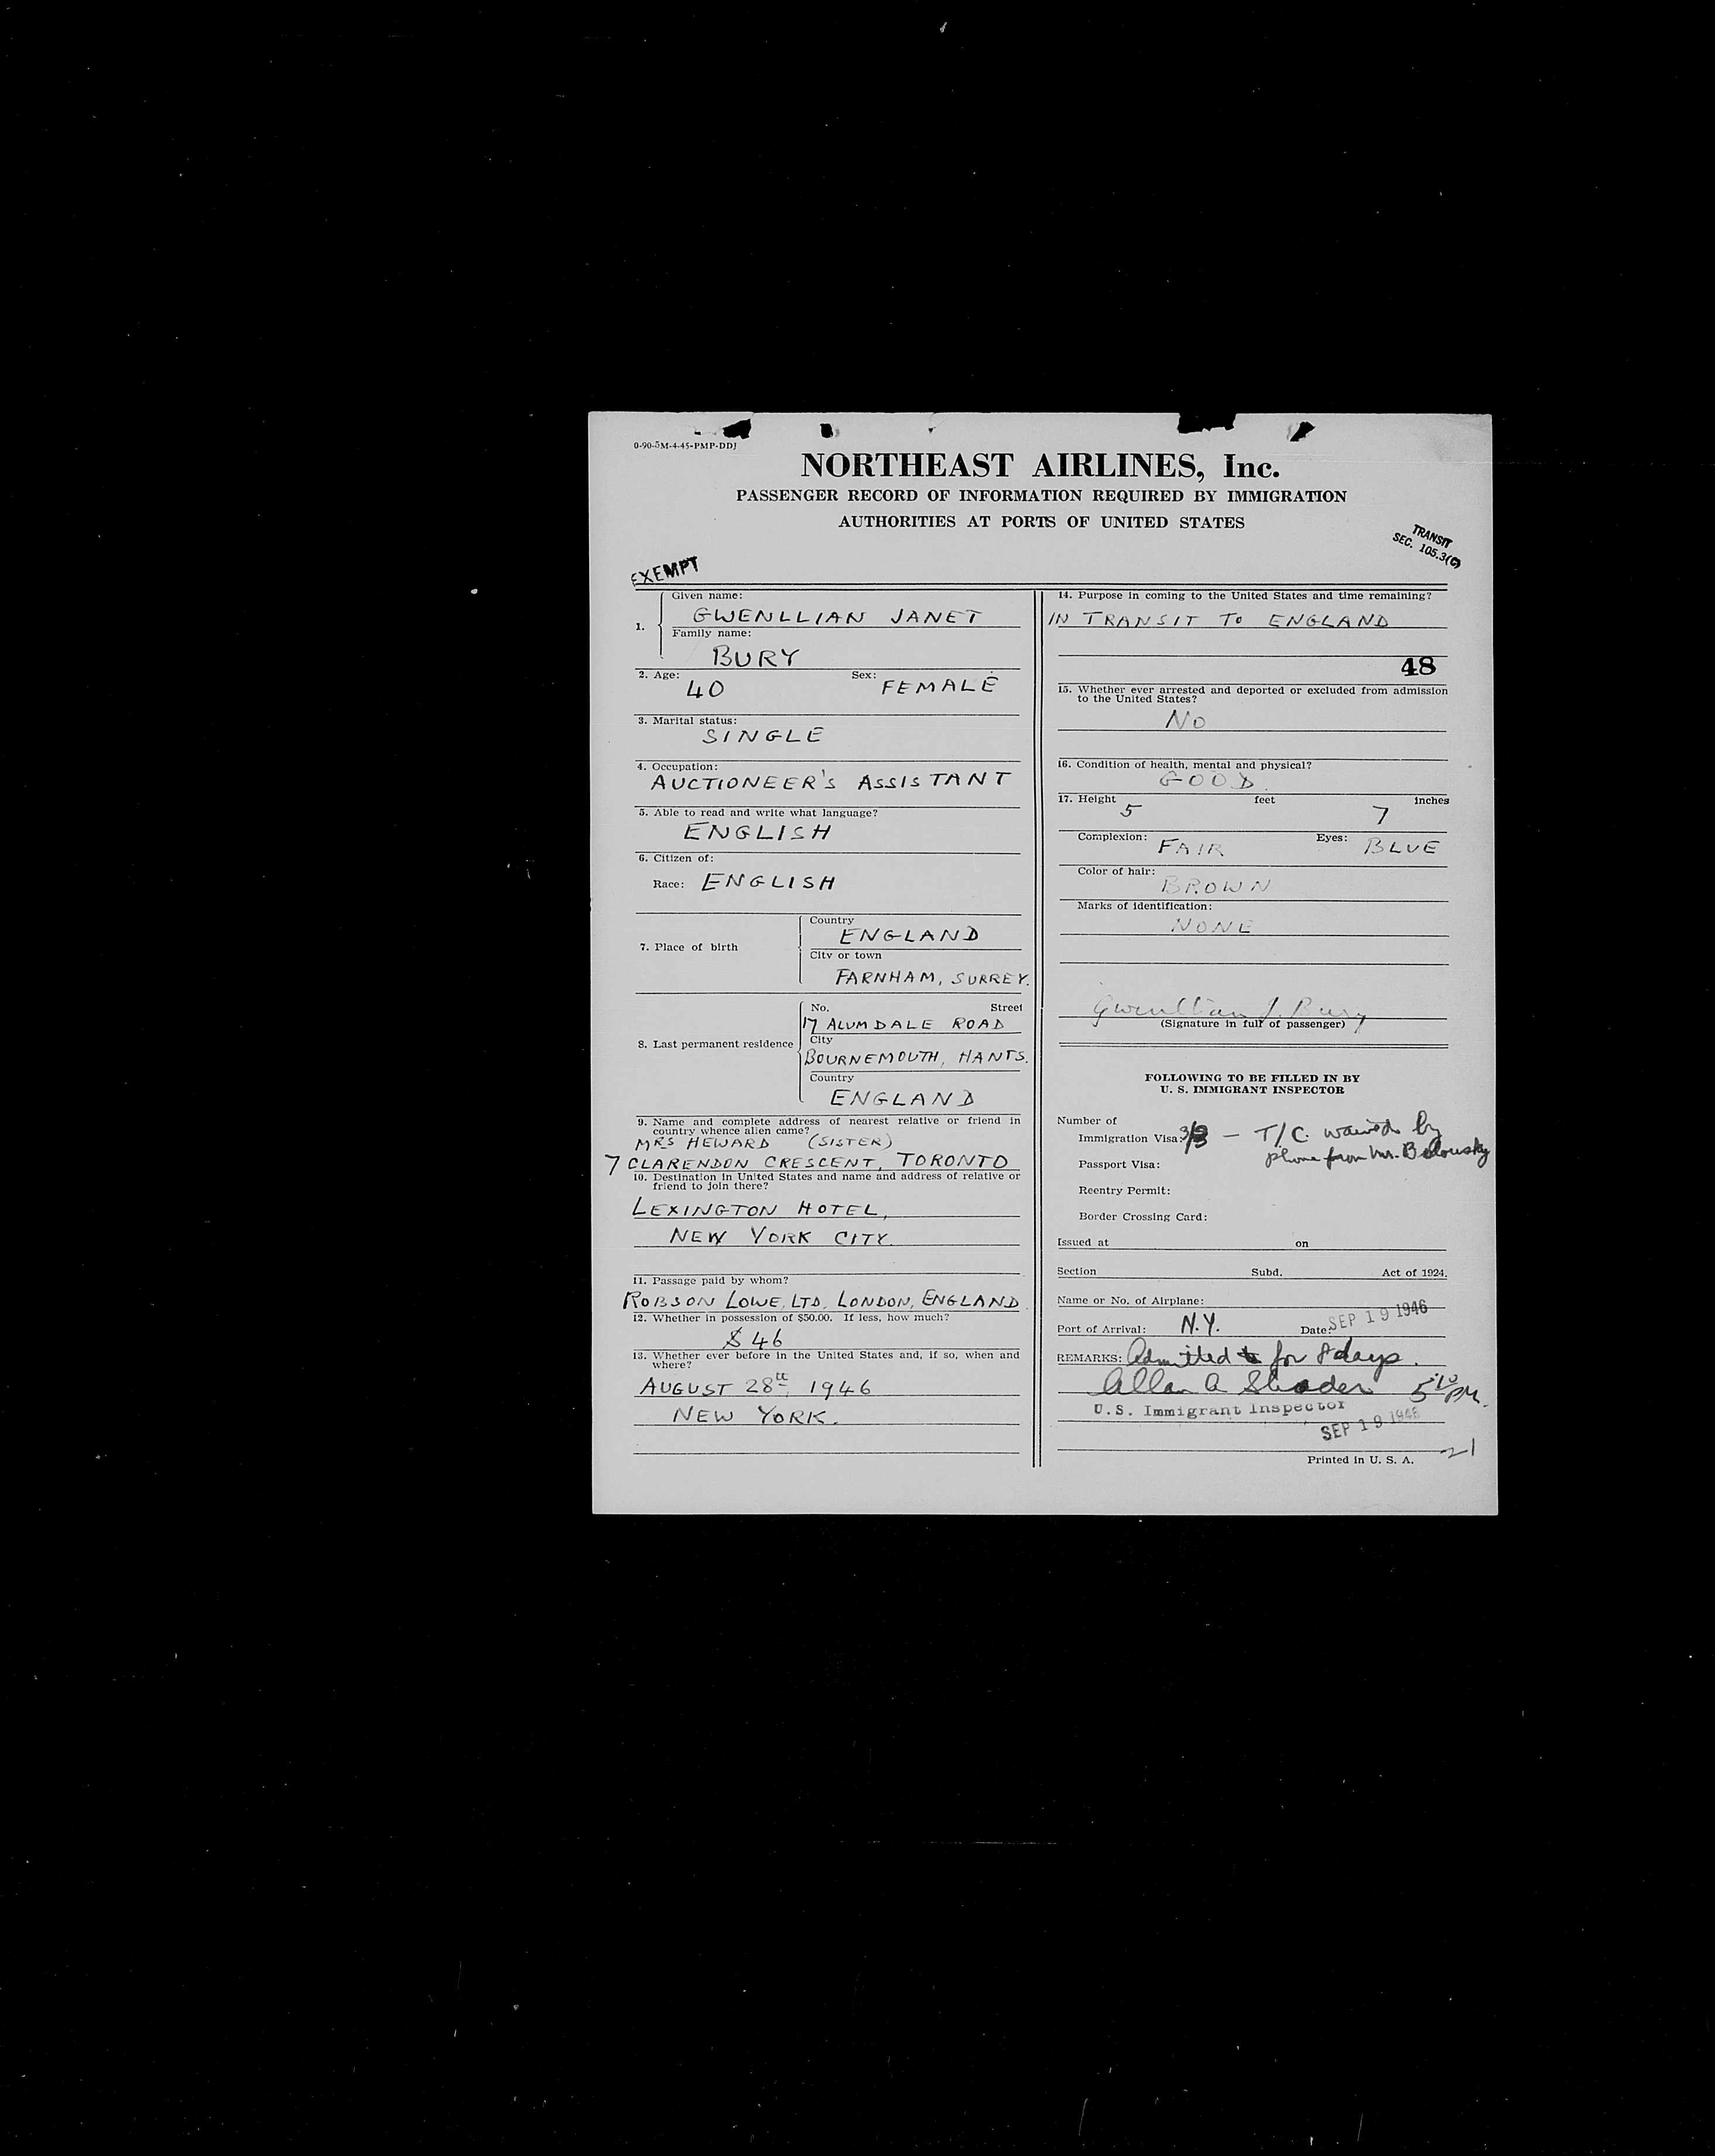 0-90-5M-4-45-PMP-DDJ
NORTHEAST AIRLINES, Inc.
PASSENGER RECORD OF INFORMATION REQUIRED BY IMMIGRATION
AUTHORITIES AT PORTS OF UNITED STATES
TRANSIT
SEC. 105.3(C)
EXEMPT
1. Given name:
GWENLLIAN JANET
Family name:
BURY
2. Age: 40 Sex: FEMALE
3. Marital status:
SINGLE
4. Occupation:
AUCTIONEER'S ASSISTANT
5. Able to read and write what language?
ENGLISH
6. Citizen of:
Race: ENGLISH
7. Place of birth
Country
ENGLAND
City or town
FARNHAM, SURREY.
8. Last permanent residence
No. Street
17 ALUMDALE ROAD
City
BOURNEMOUTH, HANTS.
Country
ENGLAND
9. Name and complete address of nearest relative or friend in
country whence alien came?
MRS HEWARD (SISTER)
7 CLARENDON CRESCENT, TORONTO
10. Destination in United States and name and address of relative or
friend to join there?
LEXINGTON HOTEL,
NEW YORK CITY.
11. Passage paid by whom?
ROBSON LOWE, LTD. LONDON, ENGLAND.
12. Whether in possession of $50.00. If less, how much?
$46
13. Whether ever before in the United States and, if so, when and
where?
AUGUST 28th, 1946
NEW YORK.
14. Purpose in coming to the United States and time remaining?
IN TRANSIT TO ENGLAND
48
15. Whether ever arrested and deported or excluded from admission
to the United States?
NO
16. Condition of health, mental and physical?
GOOD.
17. Height 5 feet 7 inches
Complexion: FAIR Eyes: BLUE
Color of hair:
BROWN
Marks of identification:
NONE
Gwenllian J. Bury
(Signature in full of passenger)
FOLLOWING TO BE FILLED IN BY
U. S. IMMIGRANT INSPECTOR
Number of
Immigration Visa: — T/C. waived by
phone from Mr.
Passport Visa:
Reentry Permit:
Border Crossing Card:
Issued at on
Section Subd. Act of 1924.
Name or No. of Airplane:
Port of Arrival: N.Y. Date: SEP 19 1946
REMARKS: Admitted for 8 days.
Allan A Shader 5:10 PM.
U.S. Immigrant Inspector
SEP 19 1946
21
Printed in U. S. A.